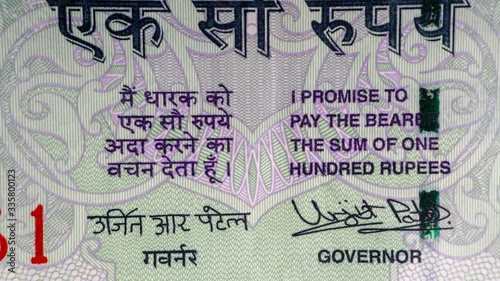 एक सौ रुपये
मैं धारक को
एक सौ रुपये
अदा करने का
वचन देता हूँ।
I PROMISE TO
PAY THE BEARE
THE SUM OF ONE
HUNDRED RUPEES
उर्जित आर पटेल
गवर्नर
Urjit Patel
GOVERNOR
1
Adobe Stock | #335800123